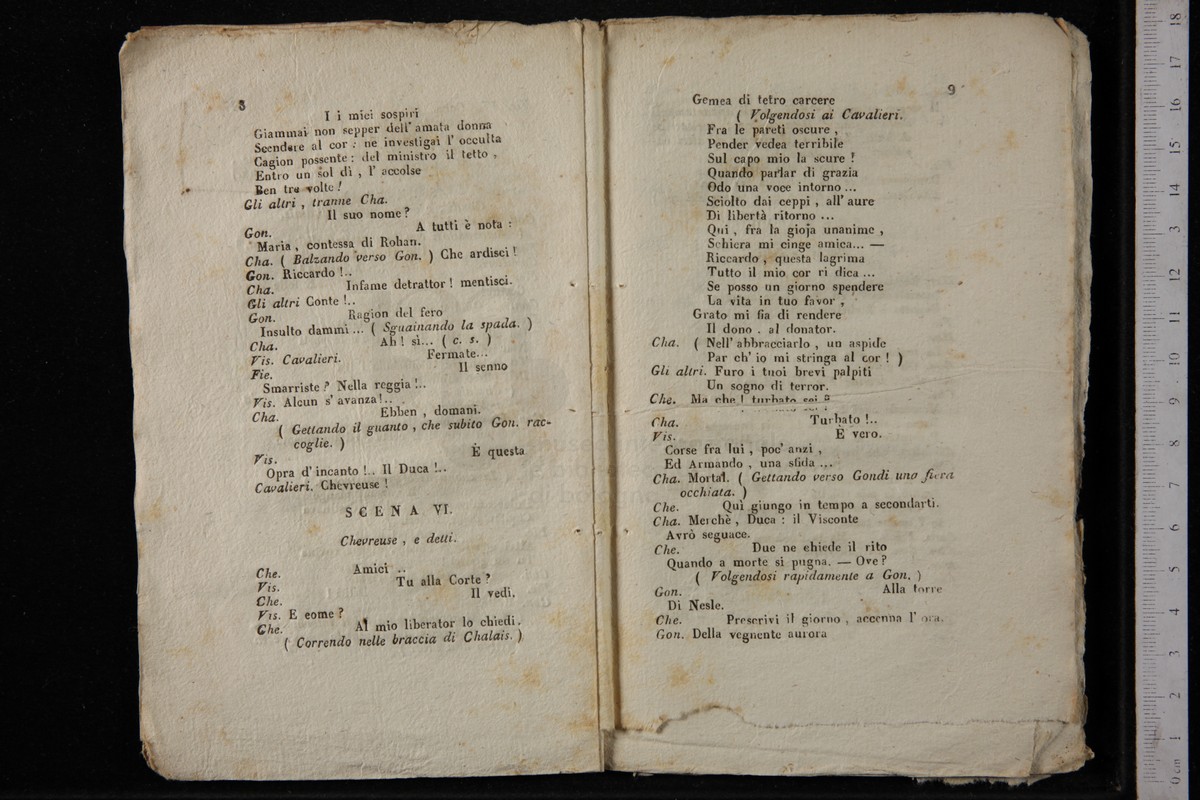 8
I i miei sospiri
Giammai non sepper dell' amata donna
Scendere al cor : ne investigai l' occulta
Cagion possente : del ministro il tetto ,
Entro un sol dì , l' accolse
Ben tre volte !
Gli altri , tranne Cha.
Il suo nome ?
Gon. A tutti è nota :
Maria , contessa di Rohan.
Cha. ( Balzando verso Gon. ) Che ardisci !
Gon. Riccardo !..
Cha. Infame detrattor ! mentisci.
Gli altri Conte !..
Gon. Ragion del fero
Insulto dammi ... ( Sguainando la spada. )
Cha. Ah ! sì... ( c. s. )
Vis. Cavalieri. Fermate...
Fie. Il senno
Smarriste ? Nella reggia !..
Vis. Alcun s' avanza !..
Cha. Ebben , domani.
( Gettando il guanto , che subito Gon. rac-
coglie. )
Vis. È questa
Opra d' incanto !.. Il Duca !..
Cavalieri. Chevreuse !
SCENA VI.
Chevreuse , e detti.
Che. Amici ..
Vis. Tu alla Corte ?
Che. Il vedi.
Vis. E eome ?
Che. Al mio liberator lo chiedi.
( Correndo nelle braccia di Chalais. )
9
Gemea di tetro carcere
( Volgendosi ai Cavalieri.
Fra le pareti oscure ,
Pender vedea terribile
Sul capo mio la scure !
Quando parlar di grazia
Odo una voce intorno ...
Sciolto dai ceppi , all' aure
Di libertà ritorno ...
Qui , fra la gioja unanime ,
Schiera mi cinge amica... —
Riccardo , questa lagrima
Tutto il mio cor ri dica ...
Se posso un giorno spendere
La vita in tuo favor ,
Grato mi fia di rendere
Il dono . al donator.
Cha. ( Nell' abbracciarlo , un aspide
Par ch' io mi stringa al cor ! )
Gli altri. Furo i tuoi brevi palpiti
Un sogno di terror.
Che. Ma che ! turbato sei ?
Cha. Turbato !..
Vis. È vero.
Corse fra lui , poc' anzi ,
Ed Armando , una sfida ...
Cha. Mortal. ( Gettando verso Gondi una fiera
occhiata. )
Che. Quì giungo in tempo a secondarti.
Cha. Merchè , Duca : il Visconte
Avrò seguace.
Che. Due ne chiede il rito
Quando a morte si pugna. — Ove ?
( Volgendosi rapidamente a Gon. )
Gon. Alla torre
Di Nesle.
Che. Prescrivi il giorno , accenna l' ora.
Gon. Della vegnente aurora